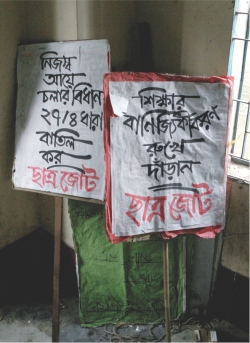 নিজস্ব
আয়ে
চলার বিধান
২৭/৪ ধারা
বাতিল
কর
ছাত্র জোট
শিক্ষার
বানিজ্যিকীকরণ
রুখে
দাঁড়ান
ছাত্র জোট